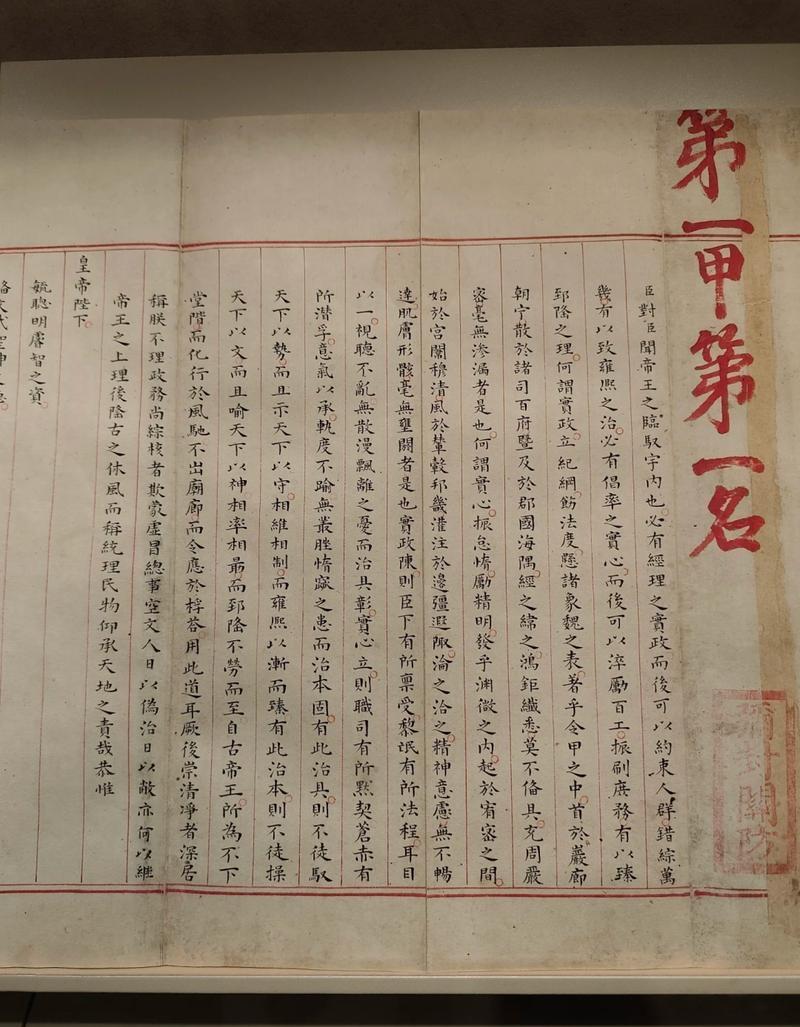 第一甲第一名
臣對臣聞帝王之臨馭宇內也必有經理之實政而後可以約束人群錯綜萬
幾有以致雍熙之治必有倡率之實心而後可以淬勵百工振刷庶務有以臻
郅隆之理何謂實政立紀綱飭法度懸諸象魏之表著乎令甲之中首於巖廊
朝宁散於諸司百府暨及於郡國海隅經之緯之鴻鉅纖悉莫不備具充周嚴
密毫無滲漏者是也何謂實心振怠惰勵精明發乎淵微之內起於宥密之間
始於宮闈穆清風於輦轂邦畿灌注於邊疆遐陬淪之洽之精神意慮無不暢
達肌膚形骸毫無壅閼者是也實政陳則臣下有所稟受黎氓有所法程耳目
以一視聽不亂無散漫飄離之憂而治具彰實心立則職司有所默契蒼赤有
所潛孚意氣以承軌度不踰無叢脞惰窳之患而治本固有此治具則不徒馭
天下以勢而且示天下以守相維相制而雍熙以漸而臻有此治本則不徒操
天下以文而且喻天下以神相率相勗而郅隆不勞而至自古帝王所為不下
堂階而化行於風馳不出廟廊而令應於桴荅用此道耳厥後崇清凈者深居
稱朕不理政務尚綜核者欺蒙虛冒總事空文人日以偽治日以敝亦何以繼
帝王之上理後隆古之休風而稱統理民物仰承天地之責哉恭惟
皇帝陛下
毓聰明睿智之資